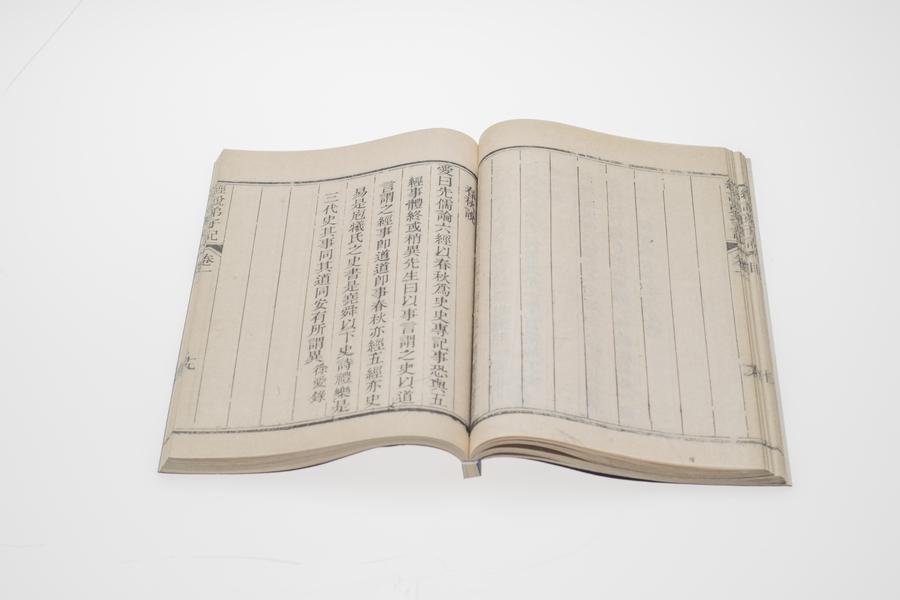 愛曰先儒論六經以春秋爲史史專記事恐與五
經事體終或稍異先生曰以事言謂之史以道
言謂之經事卽道道卽事春秋亦經五經亦史
易是庖犧氏之史書是堯舜以下史詩禮樂是
三代史其事同其道同安有所謂異 徐愛錄
經說弟子記
卷二
十九